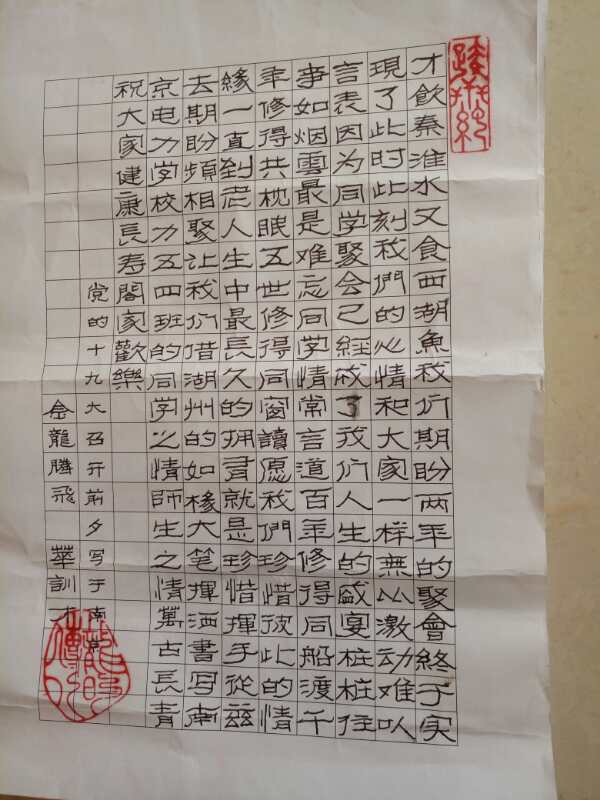 才飲秦淮水又食西湖魚我们期盼两年的聚會終于实
現了此时此刻我們的心情和大家一样無比激动难以
言表因为同学聚会已經成了我们人生的盛宴桩桩往
事如烟雲最是难忘同学情常言道百年修得同船渡千
年修得共枕眠五世修得同窗讀愿我們珍惜彼此的情
緣一直到老人生中最長久的拥有就是珍惜揮手從兹
去期盼頻相聚让我们借湖州的如椽大笔揮洒書写南
京电力学校力五四班的同学之情師生之情萬古長青
祝大家健康長寿閤家歡樂
党的十九大召开前夕写于南京
金龍騰飛 華訓才